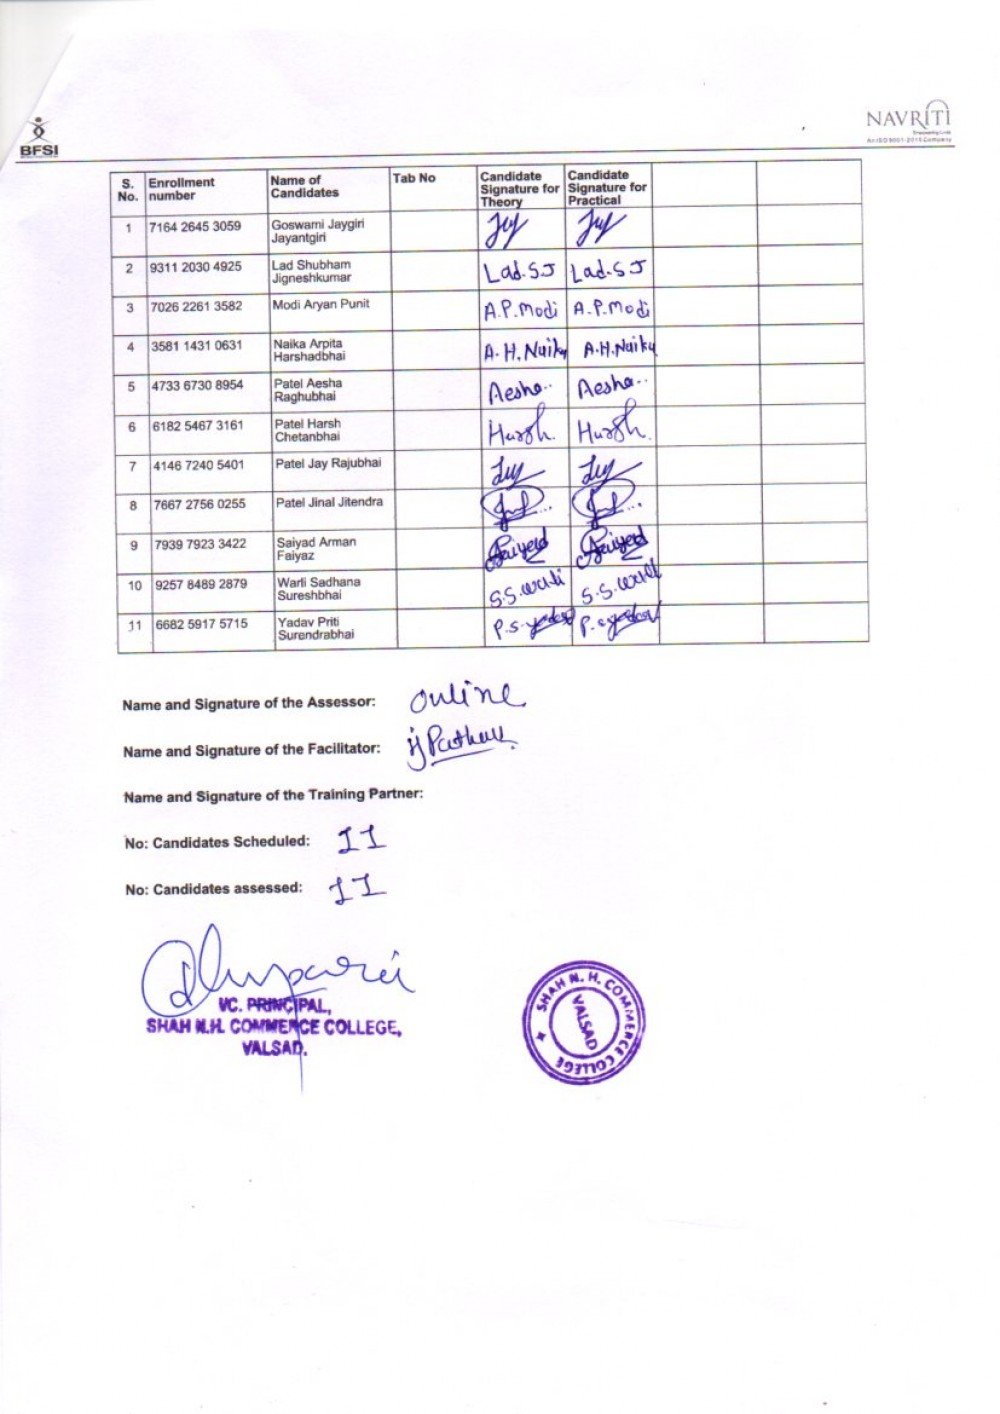 BFSI
NAVRITI
Empowering Lives
An ISO 9001-2015 Company
S. No. Enrollment number Name of Candidates Tab No Candidate Signature for Theory Candidate Signature for Practical
1 7164 2645 3059 Goswami Jaygiri Jayantgiri Jay Jay
2 9311 2030 4925 Lad Shubham Jigneshkumar Lad.S J Lad.S J
3 7026 2261 3582 Modi Aryan Punit A.P.Modi A.P.Modi
4 3581 1431 0631 Naika Arpita Harshadbhai A.H.Naika A.H.Naika
5 4733 6730 8954 Patel Aesha Raghubhai Aesha.. Aesha..
6 6182 5467 3161 Patel Harsh Chetanbhai Harsh. Harsh.
7 4146 7240 5401 Patel Jay Rajubhai Jay Jay
8 7667 2756 0255 Patel Jinal Jitendra
9 7939 7923 3422 Saiyad Arman Faiyaz Saiyed Saiyed
10 9257 8489 2879 Warli Sadhana Sureshbhai S.S.Warli S.S.Warli
11 6682 5917 5715 Yadav Priti Surendrabhai P.S.Yadav P.S.Yadav
Name and Signature of the Assessor: Online
Name and Signature of the Facilitator:
Name and Signature of the Training Partner:
No: Candidates Scheduled: 11
No: Candidates assessed: 11
I/C. PRINCIPAL,
SHAH N.H. COMMERCE COLLEGE,
VALSAD.
SHAH N. H. COMMERCE COLLEGE
VALSAD